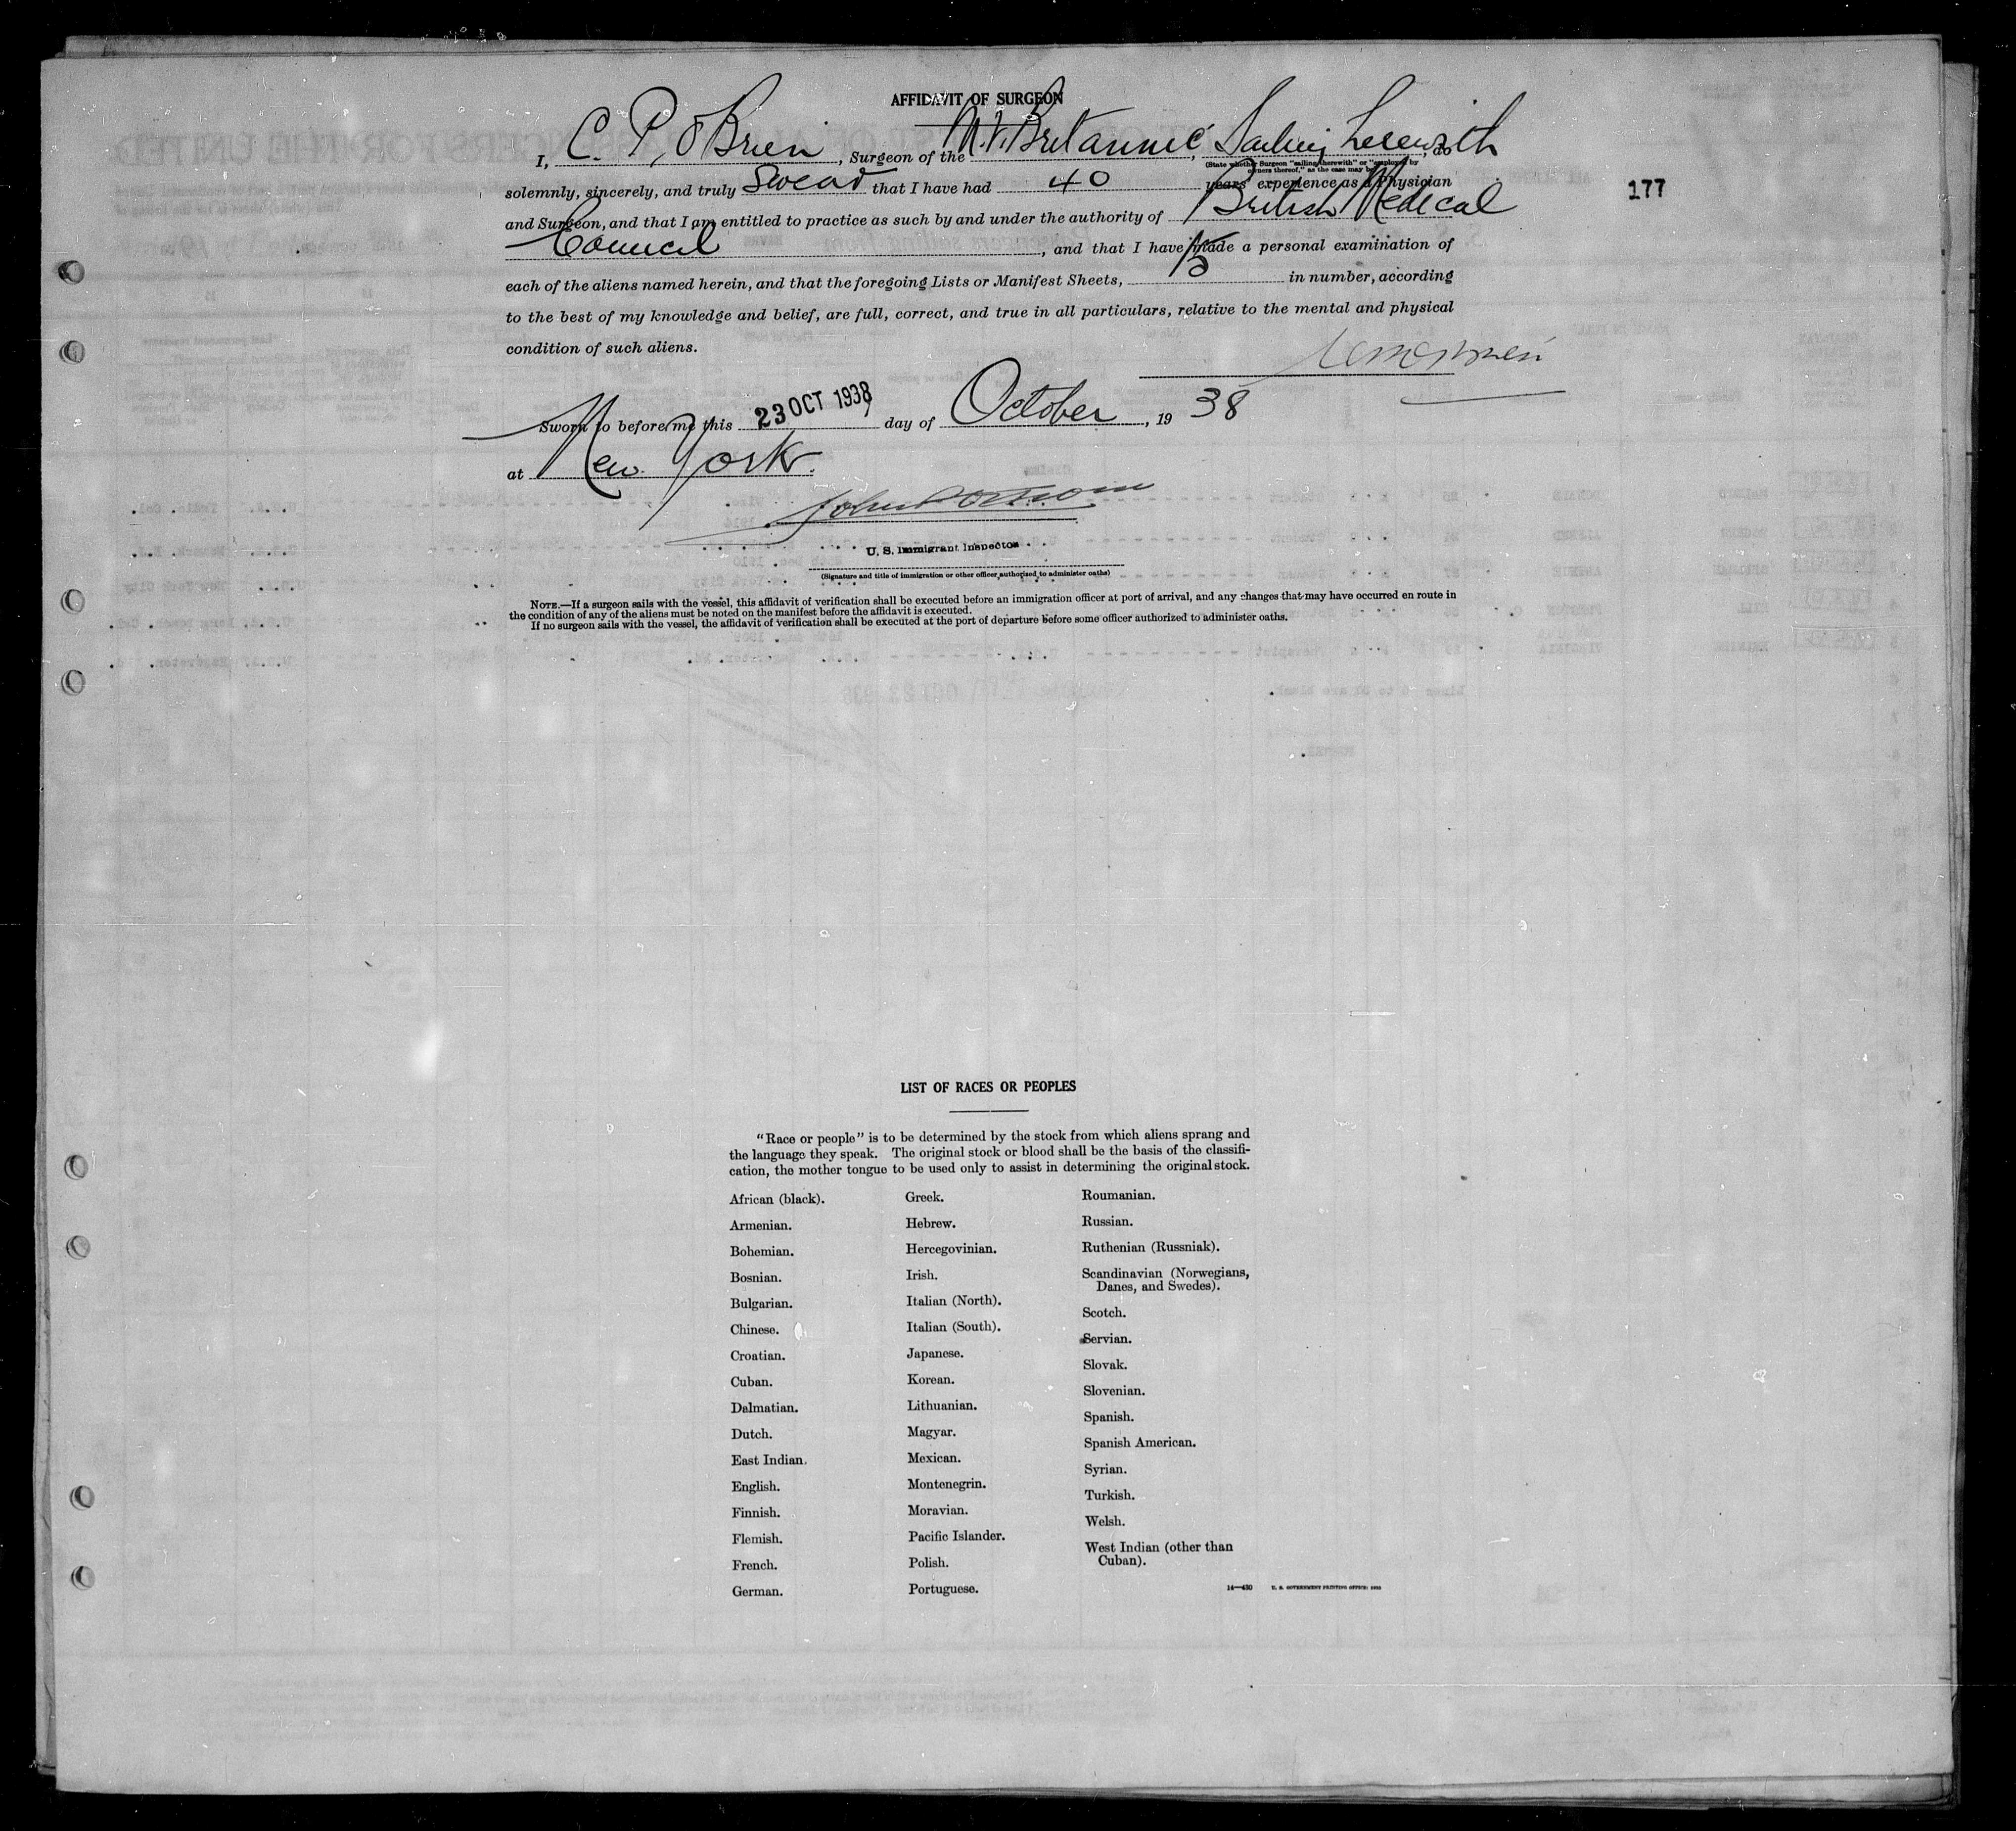 AFFIDAVIT OF SURGEON
I, C. P. O'Brien, Surgeon of the M.V. Britannic, Sailing herewith, do
(State whether Surgeon "sailing therewith" or "employed by
owners thereof," as the case may be)
177
solemnly, sincerely, and truly Swear that I have had 40 years' experience as a Physician
and Surgeon, and that I am entitled to practice as such by and under the authority of British Medical
Council, and that I have made a personal examination of
each of the aliens named herein, and that the foregoing Lists or Manifest Sheets, in number, according
to the best of my knowledge and belief, are full, correct, and true in all particulars, relative to the mental and physical
condition of such aliens.
Sworn to before me this 23 OCT 1938 day of October, 19 38
at New York.
U. S. Immigrant Inspector
(Signature and title of immigration or other officer authorized to administer oaths)
NOTE.—If a surgeon sails with the vessel, this affidavit of verification shall be executed before an immigration officer at port of arrival, and any changes that may have occurred en route in
the condition of any of the aliens must be noted on the manifest before the affidavit is executed.
If no surgeon sails with the vessel, the affidavit of verification shall be executed at the port of departure before some officer authorized to administer oaths.
LIST OF RACES OR PEOPLES
"Race or people" is to be determined by the stock from which aliens sprang and
the language they speak. The original stock or blood shall be the basis of the classifi-
cation, the mother tongue to be used only to assist in determining the original stock.
African (black).
Armenian.
Bohemian.
Bosnian.
Bulgarian.
Chinese.
Croatian.
Cuban.
Dalmatian.
Dutch.
East Indian.
English.
Finnish.
Flemish.
French.
German.
Greek.
Hebrew.
Hercegovinian.
Irish.
Italian (North).
Italian (South).
Japanese.
Korean.
Lithuanian.
Magyar.
Mexican.
Montenegrin.
Moravian.
Pacific Islander.
Polish.
Portuguese.
Roumanian.
Russian.
Ruthenian (Russniak).
Scandinavian (Norwegians,
Danes, and Swedes).
Scotch.
Servian.
Slovak.
Slovenian.
Spanish.
Spanish American.
Syrian.
Turkish.
Welsh.
West Indian (other than
Cuban).
14—430 U. S. GOVERNMENT PRINTING OFFICE: